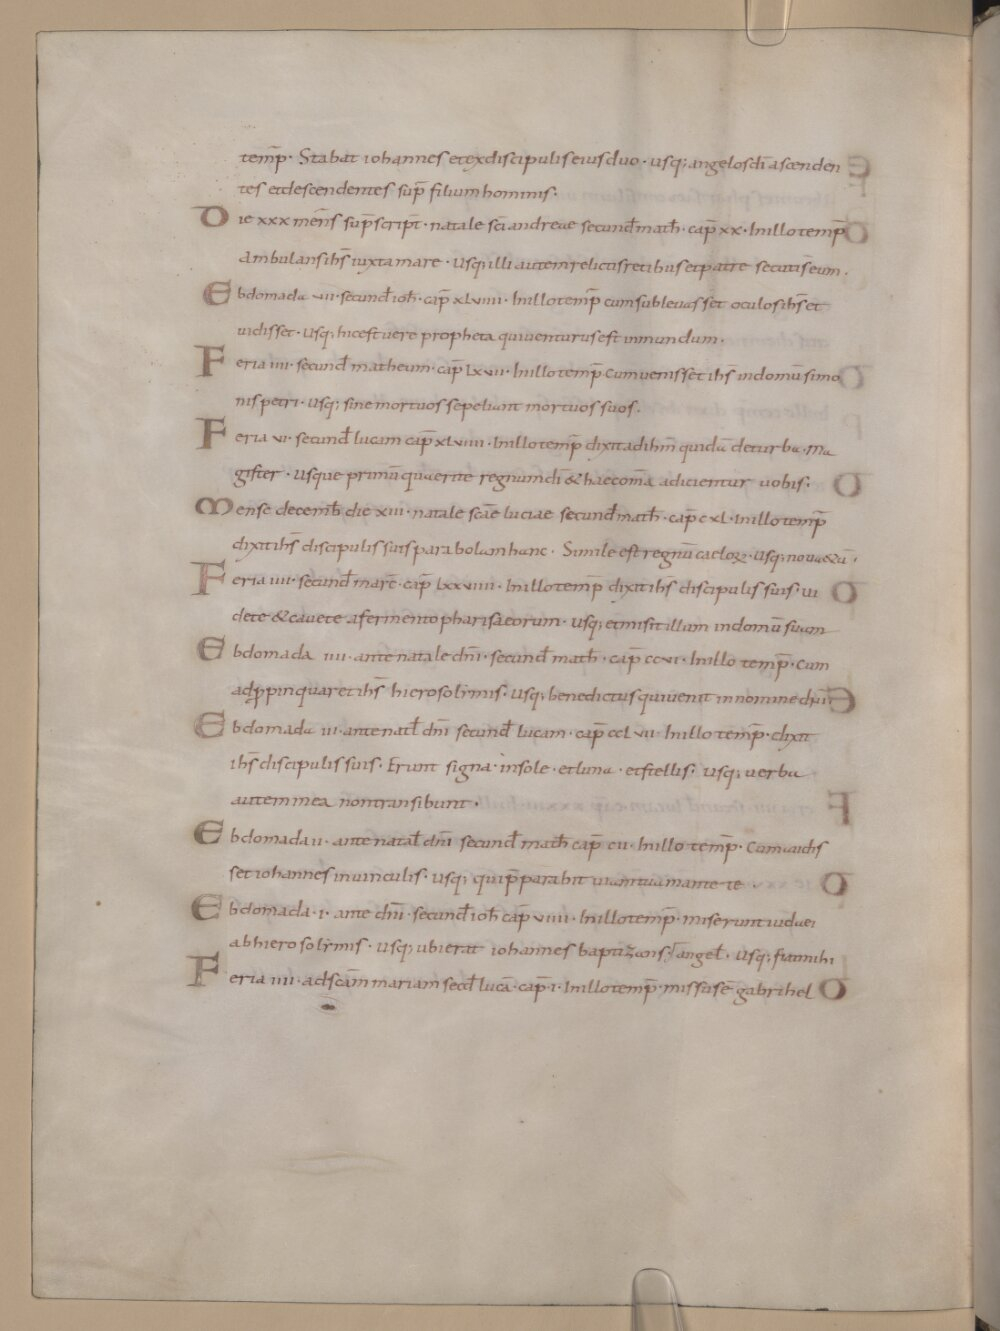 temp̄· Stabat iohannes et ex discipulis eius duo · usq; angelos dī ascenden
tes et descendentes sup̄ filium hominis·
Die xxx mens̄ sup̄script̄· natale sc̄i andreae secund̄ math̄· cap̄ xx· In illo temp̄
Ambulans ihs̄ iuxta mare · usq; illi autem relictis retibus et patre secuti s̄ eum·
Ebdomada vii· secund̄ ioh̄· cap̄ xlviiii· In illo temp̄ cum sublevasset oculos ihs̄ et
vidisset· usq; hic est vere propheta qui venturus est in mundum·
Feria iiii· secund̄ matheum· cap̄ lxvii· In illo temp̄ Cum venisset ihs̄ in domū simo
nis petri· usq; sine mortuos sepeliant mortuos suos·
Feria vi· secund̄ lucam cap̄ xlviiii· In illo temp̄ dixit ad ihm̄ quidā de turba· Ma
gister · usque primū quaerite regnum dī & haec omā adicientur vobis·
Mense decemb̄ die xiii· natale sc̄ae luciae secund̄ math̄· cap̄ cxl· In illo temp̄
dixit ihs̄ discipulis suis parabolam hanc· Simile est regnū caeloꝝ· usq; nova & ū·
Feria iiii· secund̄ marc̄· cap̄ lxxviiii· In illo temp̄ dixit ihs̄ discipulis suis· vi
dete & cavete a fermento pharisaeorum· usq; et misit illum in domū suam
Ebdomada iiii· ante natale dn̄i· secund̄ math̄· cap̄ ccvi· In illo temp̄· Cum
adp̄pinquaret ihs̄ hierosolymis· usq; benedictus qui venit in nomine dn̄i
Ebdomada iii· ante nat̄l dn̄i secund̄ lucam· cap̄ cclvii· In illo temp̄· dixit
ihs̄ discipulis suis· Erunt signa in sole · et luna · et stellis· usq; verba
autem mea non transibunt·
Ebdomada ii· ante natal̄ dn̄i secund̄ math̄ cap̄ cii· In illo temp̄· Cum audis
set iohannes in vinculis· usq; qui p̄parabit viam tuam ante te·
Ebdomada· i· ante dn̄i· secund̄ ioh̄ cap̄ viiii· In illo temp̄· miserunt iudaei
ab hierosolymis· usq; ubi erat iohannes baptizans· angel̄· usq; fiat mihi
Feria iiii· ad sc̄am mariam secd̄ lucā· cap̄· i· In illo temp̄· missus ē gabrihel